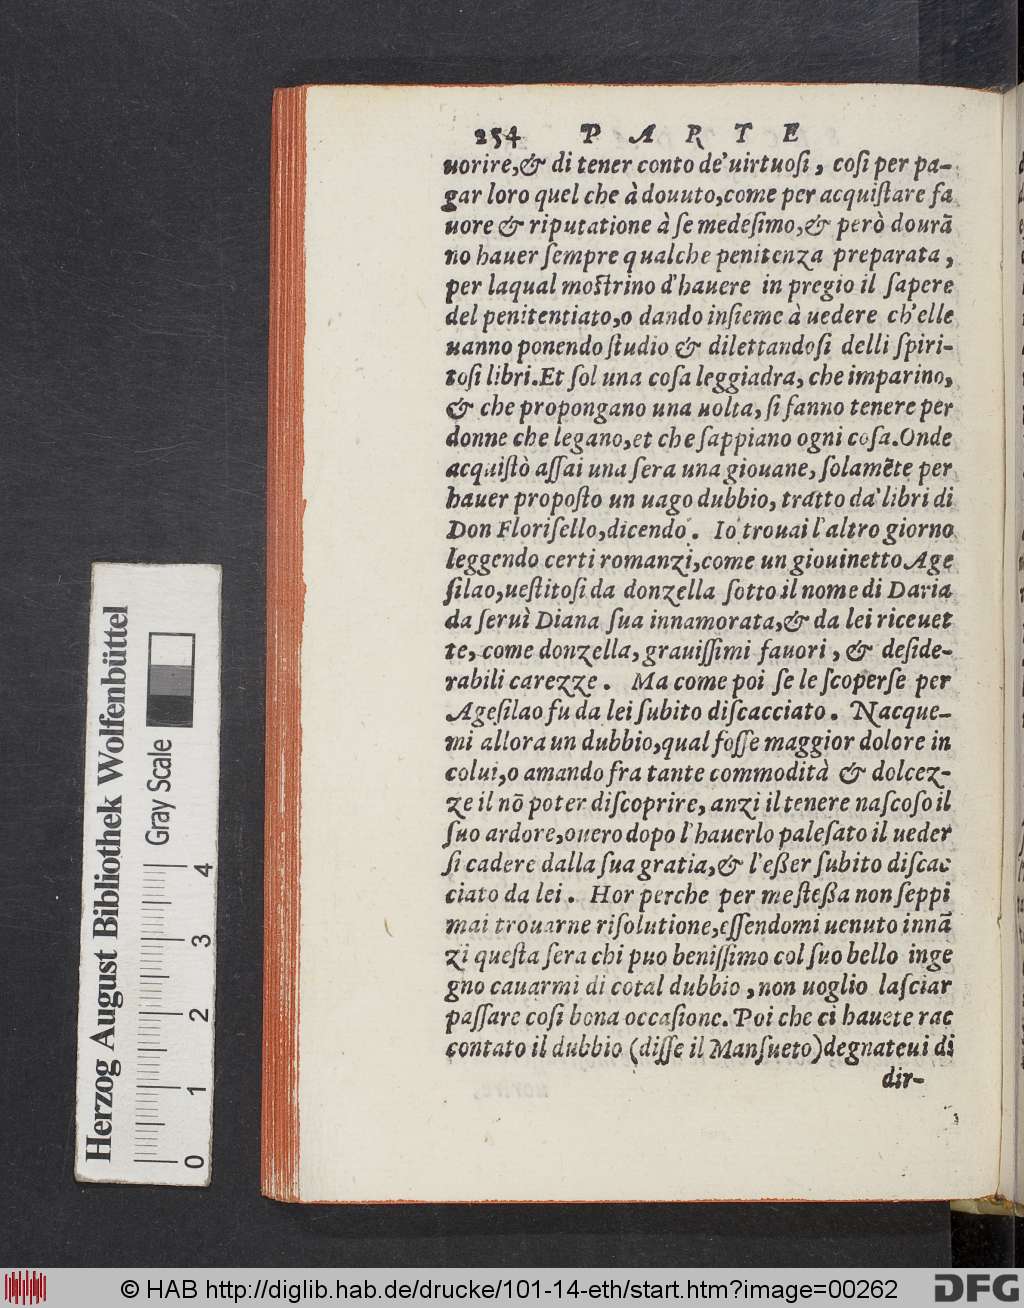 254 PARTE
uorire,& di tener conto de'uirtuosi, cosi per pa-
gar loro quel che à douuto,come per acquistare fa
uore & riputatione à se medesimo,& però dourã
no hauer sempre qualche penitenza preparata,
per laqual mostrino d'hauere in pregio il sapere
del penitentiato,o dando insieme à uedere ch'elle
uanno ponendo studio & dilettandosi delli spiri-
tosi libri.Et sol una cosa leggiadra, che imparino,
& che propongano una uolta, si fanno tenere per
donne che legano,et che sappiano ogni cosa.Onde
acquistò assai una sera una giouane, solamẽte per
hauer proposto un uago dubbio, tratto da' libri di
Don Florisello,dicendo. Io trouai l'altro giorno
leggendo certi romanzi,come un giouinetto Age
silao,uestitosi da donzella sotto il nome di Daria
da seruì Diana sua innamorata,& da lei riceuet
te, come donzella, grauissimi fauori, & deside-
rabili carezze. Ma come poi se le scoperse per
Agesilao fu da lei subito discacciato. Nacque-
mi allora un dubbio,qual fosse maggior dolore in
colui,o amando fra tante commodità & dolcez-
ze il nõ poter discoprire, anzi il tenere nascoso il
suo ardore,ouero dopo l'hauerlo palesato il ueder
si cadere dalla sua gratia,& l'eßer subito discac
ciato da lei. Hor perche per me steßa non seppi
mai trouarne risolutione,essendomi uenuto innã
zi questa sera chi puo benissimo col suo bello inge
gno cauarmi di cotal dubbio, non uoglio lasciar
passare cosi bona occasione. Poi che ci hauete rac
contato il dubbio (disse il Mansueto)degnateui di
dir-
Herzog August Bibliothek Wolfenbüttel
Gray Scale
0 1 2 3 4
© HAB http://diglib.hab.de/drucke/101-14-eth/start.htm?image=00262
DFG